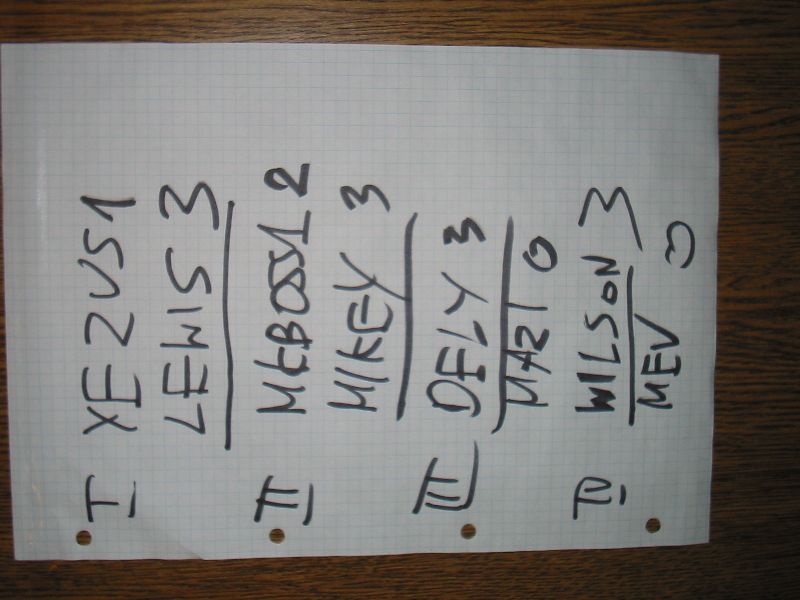 I XEZUS 1
LEWIS 3
II MCBOSS1 2
MIKEY 3
III DELY 3
MAZI 0
IV WILSON 3
MEV 0